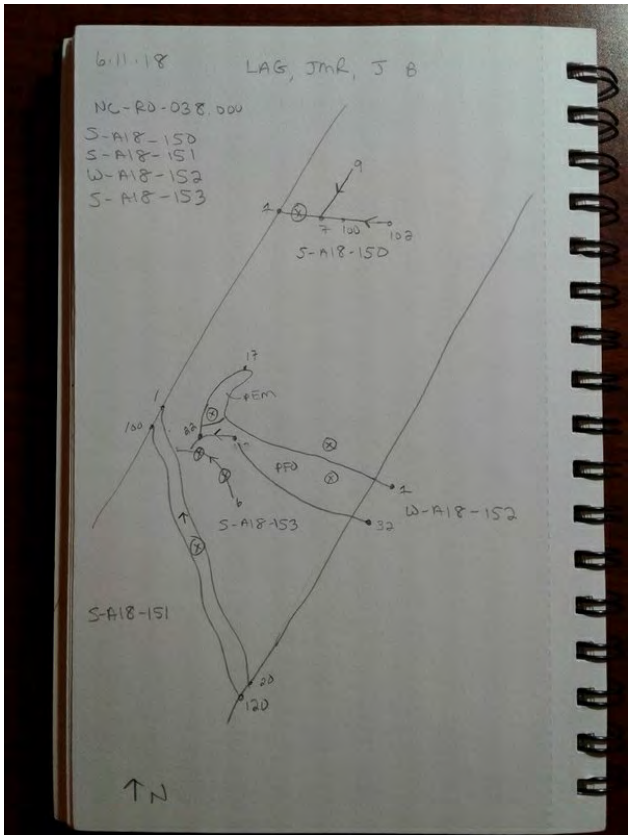 6.11.18
LAG, JMR, J B
NC-RO-038.000
S-A18-150
S-A18-151
W-A18-152
S-A18-153
9
1
7
100
102
S-A18-150
17
PEM
1
100
22
PFO
1
W-A18-152
32
6
S-A18-153
S-A18-151
20
120
N